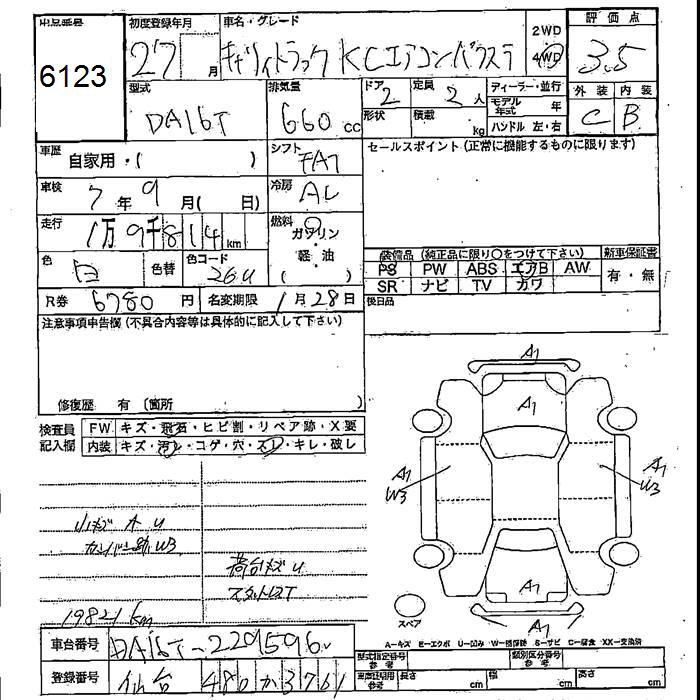 出品番号
6123
初度登録年月
27 月
車名・グレード
キャリイトラック KCエアコンパワステ
2WD
4WD
評価点
3.5
型式
DA16T
排気量
660 cc
ドア
2
定員
2 人
形状
積載
kg
ディーラー・並行
モデル年式 年
ハンドル 左・右
外装 内装
C B
車歴
自家用・( )
シフト
FA7
セールスポイント(正常に機能するものに限ります)
車検
7 年 9 月( 日)
冷房
AC
走行
1万 9千 8 1 4 km
燃料
ガソリン
・
軽油
( )
色
白
色替
色コード
26U
装備品 (純正品に限り○をつけて下さい)
PS PW ABS エアB AW
SR ナビ TV カワ
新車保証書
有・無
R券 6780 円
名変期限 1月28日
後日品
注意事項申告欄(不具合内容等は具体的に記入して下さい)
修復歴 有 〔箇所 〕
検査員
記入欄
FW キズ・飛石・ヒビ割・リペア跡・X要
内装 キズ・汚レ・コゲ・穴・スレ・キレ・破レ
A1
A1
A1
W3
A1
W3
A1
A1
小キズ 小U
カンバン跡 W3
荷台キズU
スタッドレスT
19821 km
スペア
A-キズ E-エクボ U-凹み W-補修跡 S-サビ C-腐食 XX-交換済
車台番号 DA16T-229596
登録番号 仙台 480 か 3761
型式指定番号
参考
類別区分番号
参考
車庫証明用
参考
長さ cm
幅 cm
高さ cm